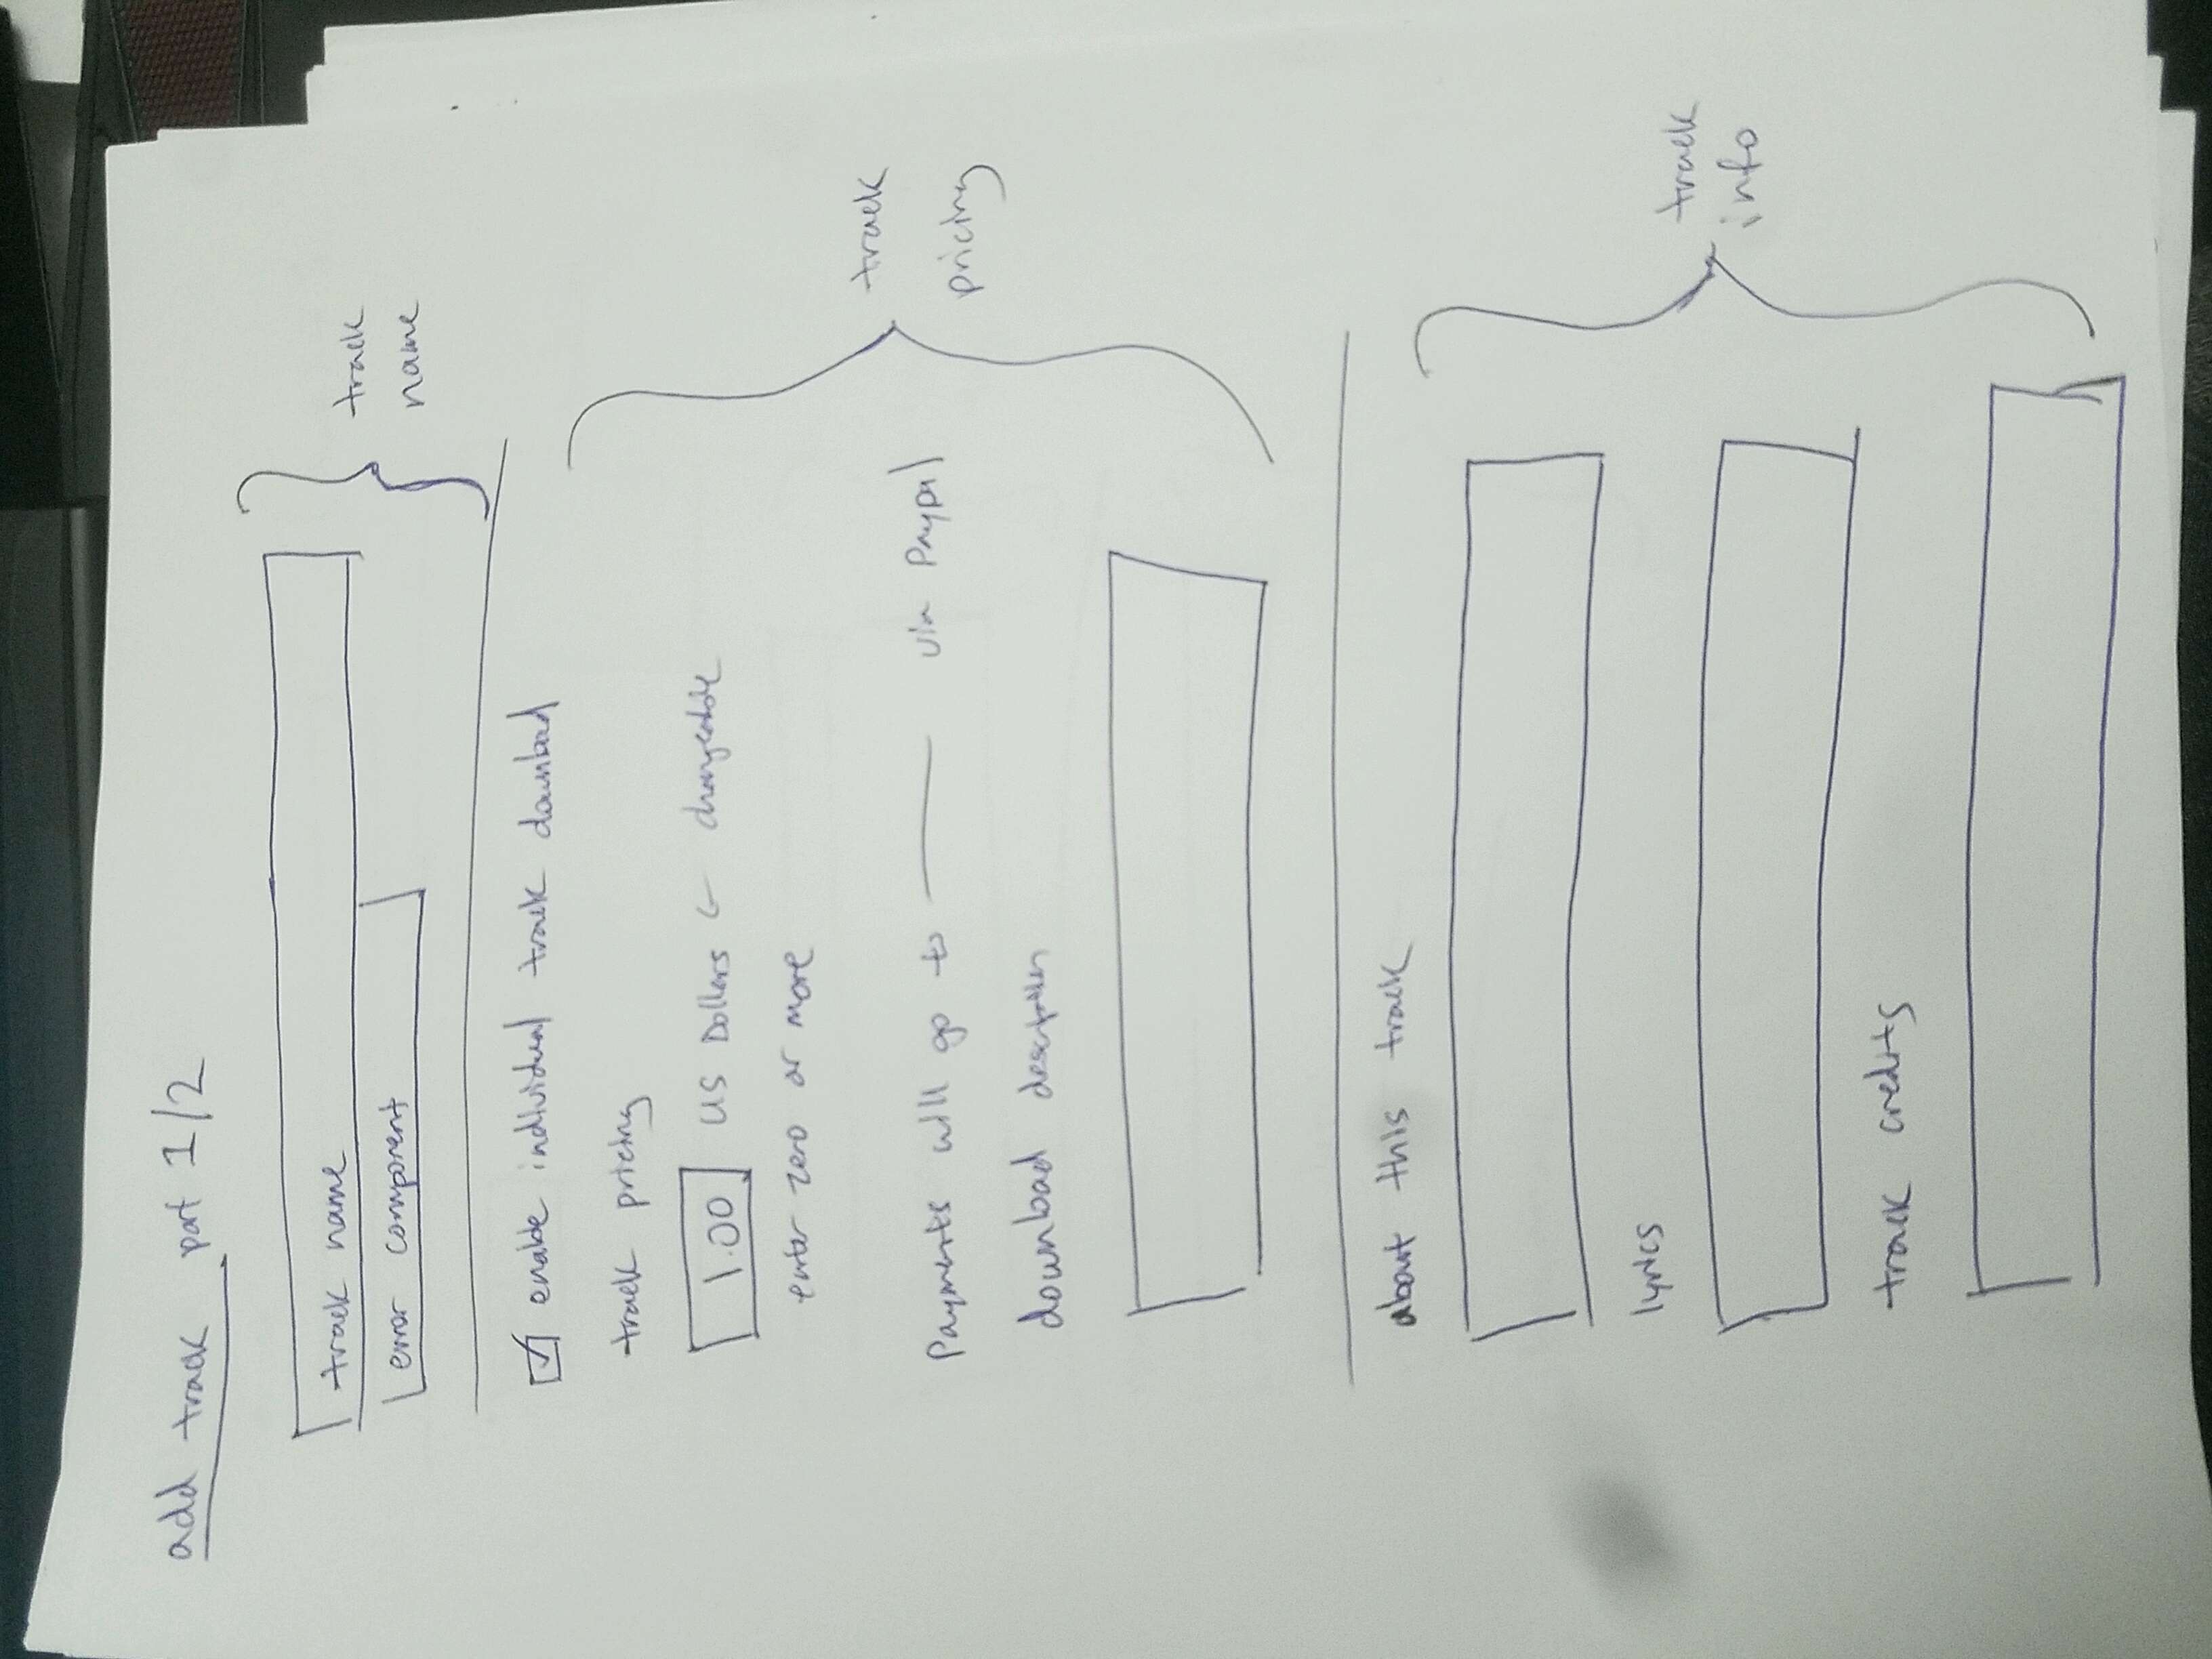 add track part 1/2
track name
error component
track
name
enable individual track download
track pricing
1.00 US Dollars ← changeable
enter zero or more
Payments will go to —— via Paypal
download description
track
pricing
about this track
lyrics
track credits
track
info